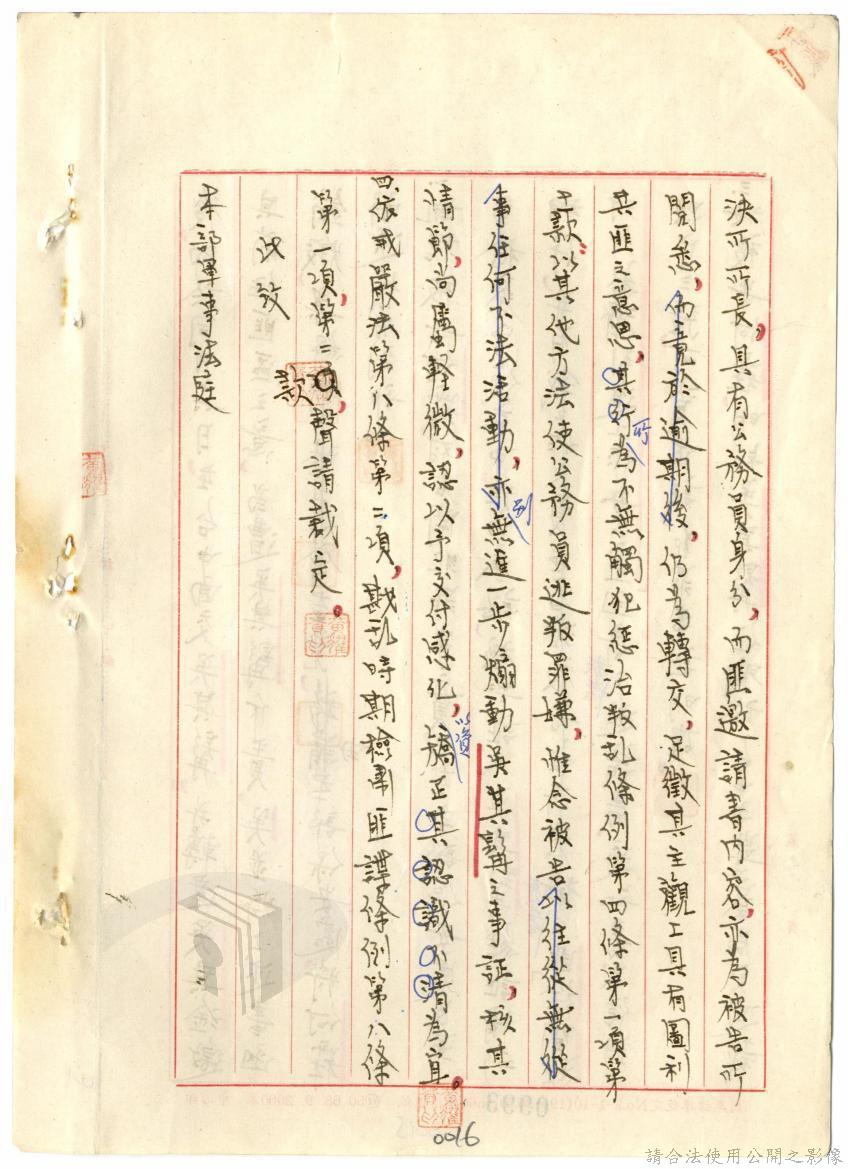 決所所長，具有公務員身分，而匪邀請書內容，亦為被告所
閱悉，而竟於逾期後，仍為轉交，足徵其主觀上具有圖利
共匪之意思，其行所為不無觸犯懲治叛乱條例第四條第一項第
款以其他方法使公務員逃叛罪嫌，惟念被告以往從無從
事任何不法活動，亦無到進一步煽動吳其講之事証，核其
情節，尚屬軽微，認以予交付感化，以資矯正其認識不清為宜。
四、依戒嚴法第八條第二項，戡乱時期檢肅匪諜條例第八條
第一項，第二款，聲請裁定。
此致
本部軍事法庭
0016
請合法使用公開之影像